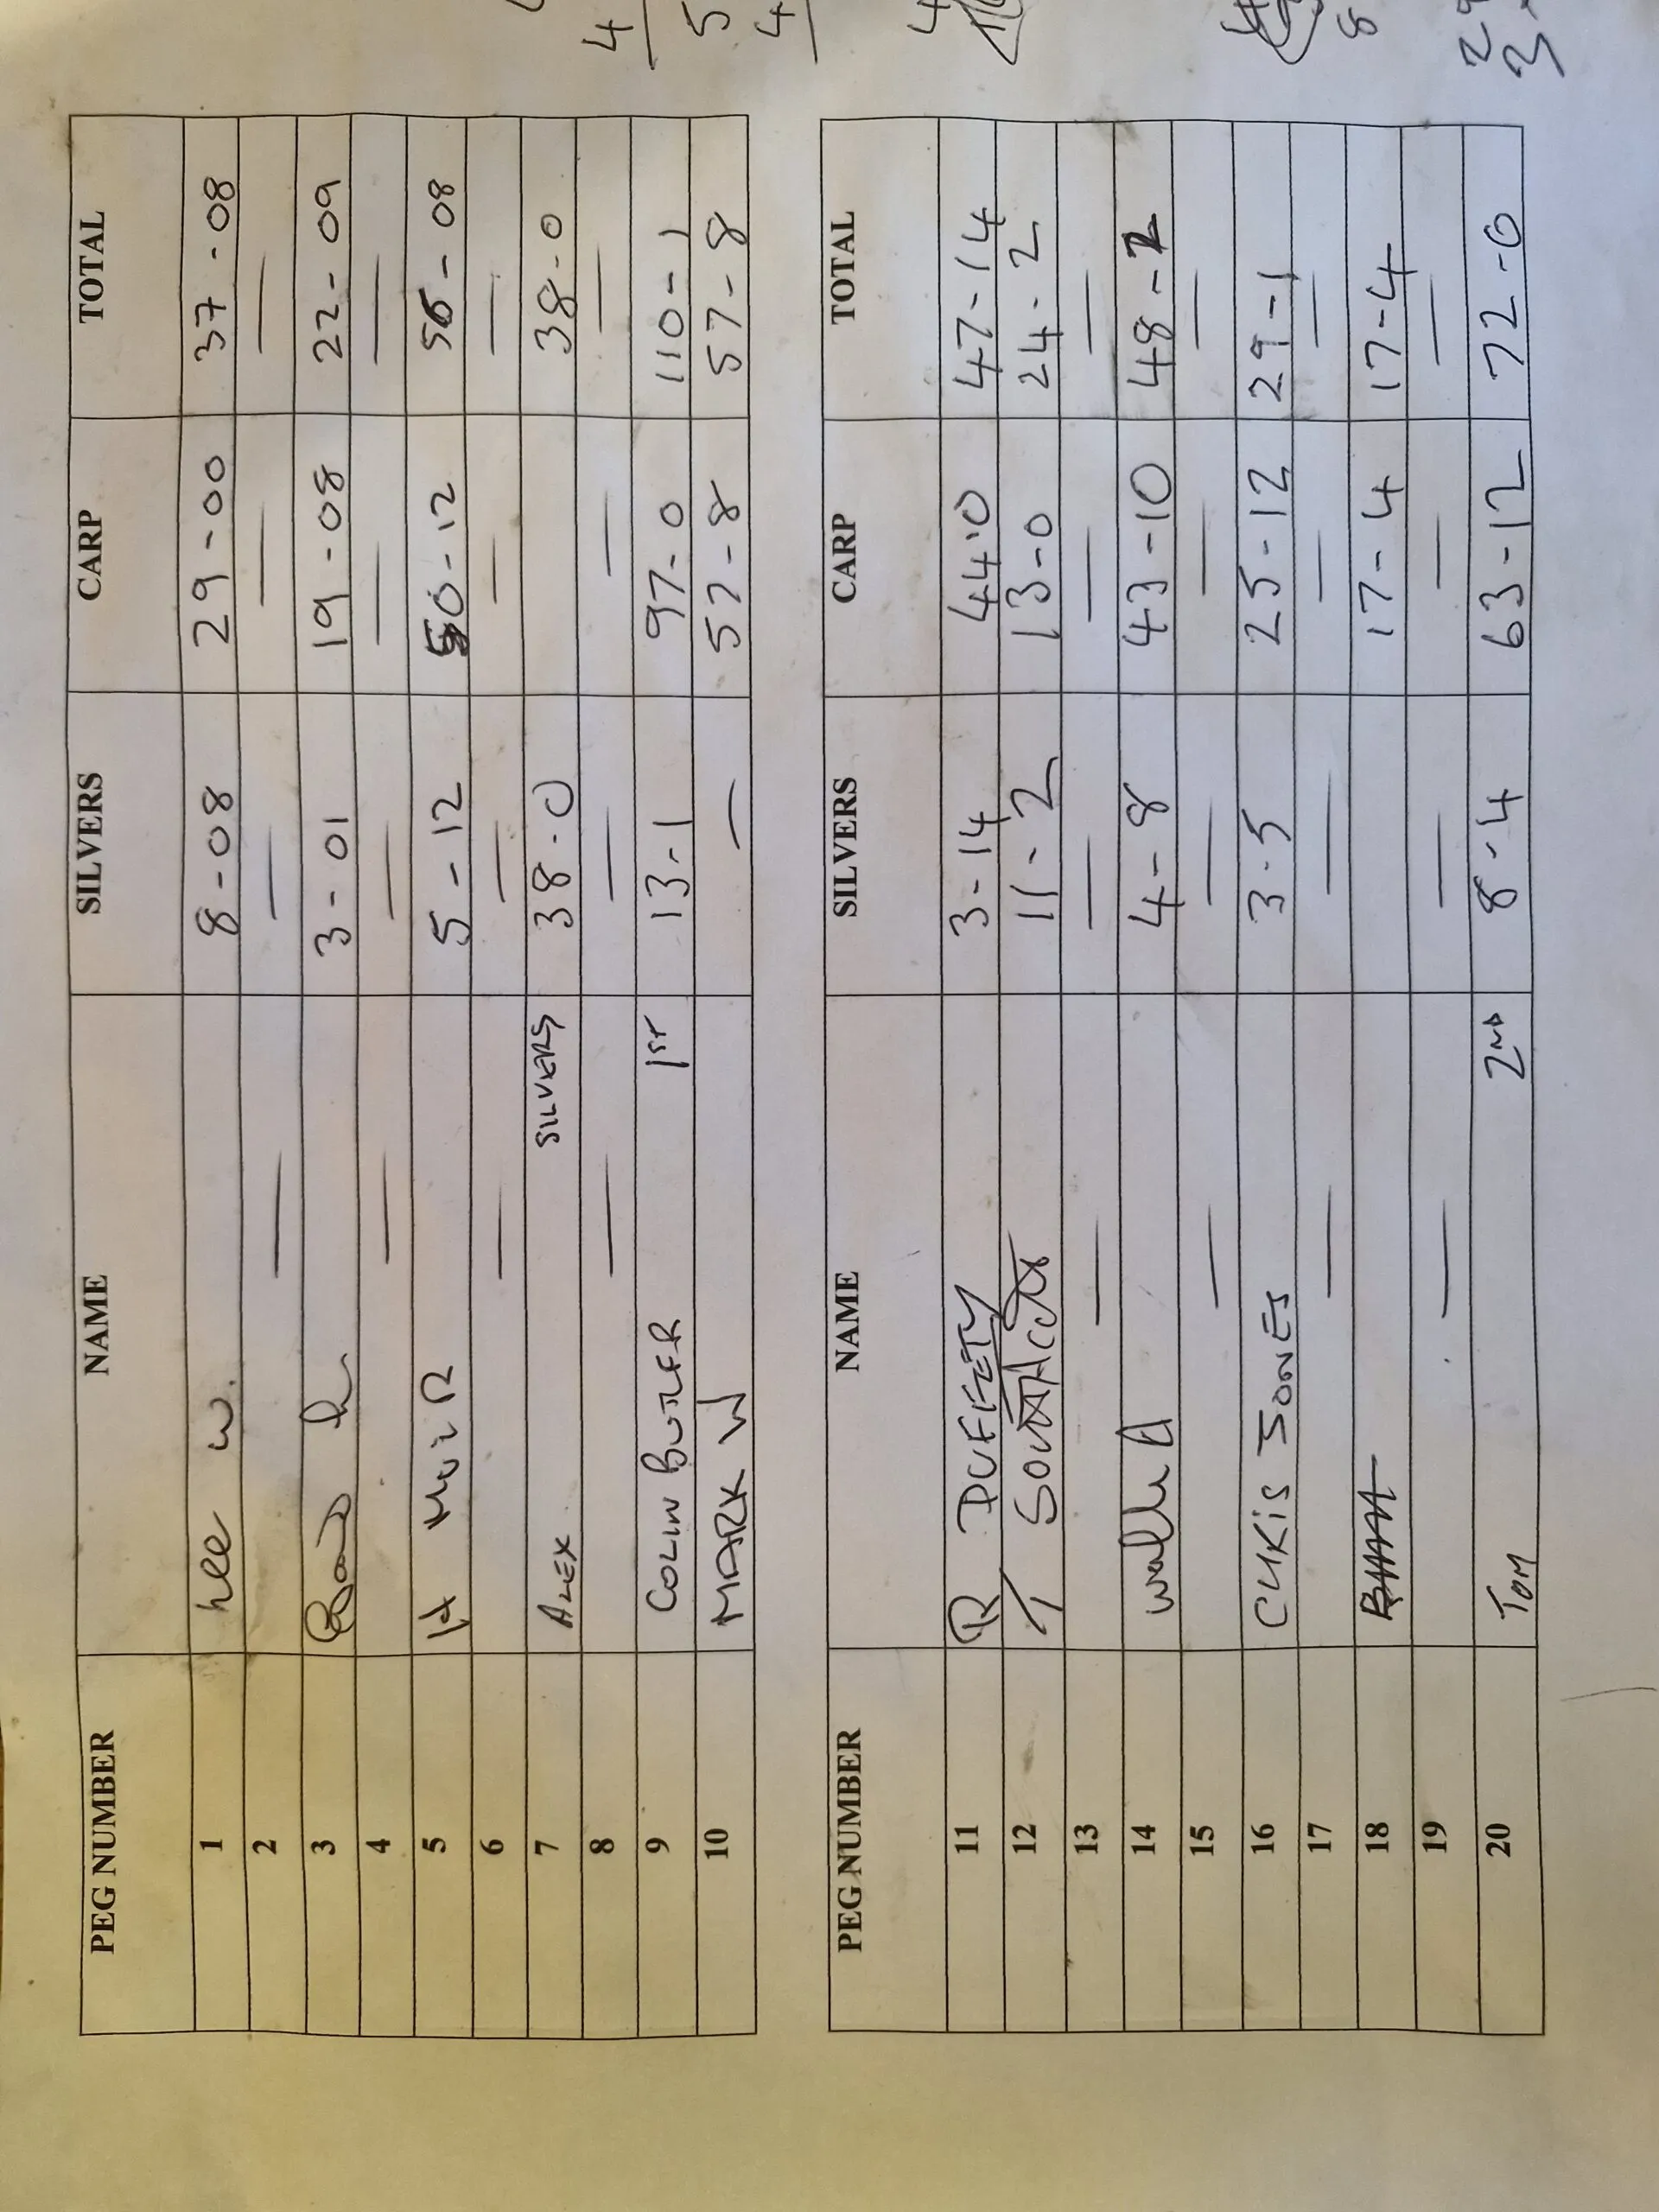 PEG NUMBER NAME SILVERS CARP TOTAL
1 Lee W. 8-08 29-00 37-08
2 — — — —
3 3-01 19-08 22-09
4 — — — —
5 5-12 50-12 56-08
6 — — — —
7 ALEX SILVERS 38-0 38-0
8 — — — —
9 COLIN BUTLER 1ST 13-1 97-0 110-1
10 MARK W — 57-8 57-8
PEG NUMBER NAME SILVERS CARP TOTAL
11 R DUFFETY 3-14 44-0 47-14
12 T 11-2 13-0 24-2
13 — — — —
14 4-8 43-10 48-2
15 — — — —
16 CHRIS JONES 3-5 25-12 29-1
17 — — — —
18 17-4 17-4
19 — — — —
20 TOM 2ND 8-4 63-12 72-0